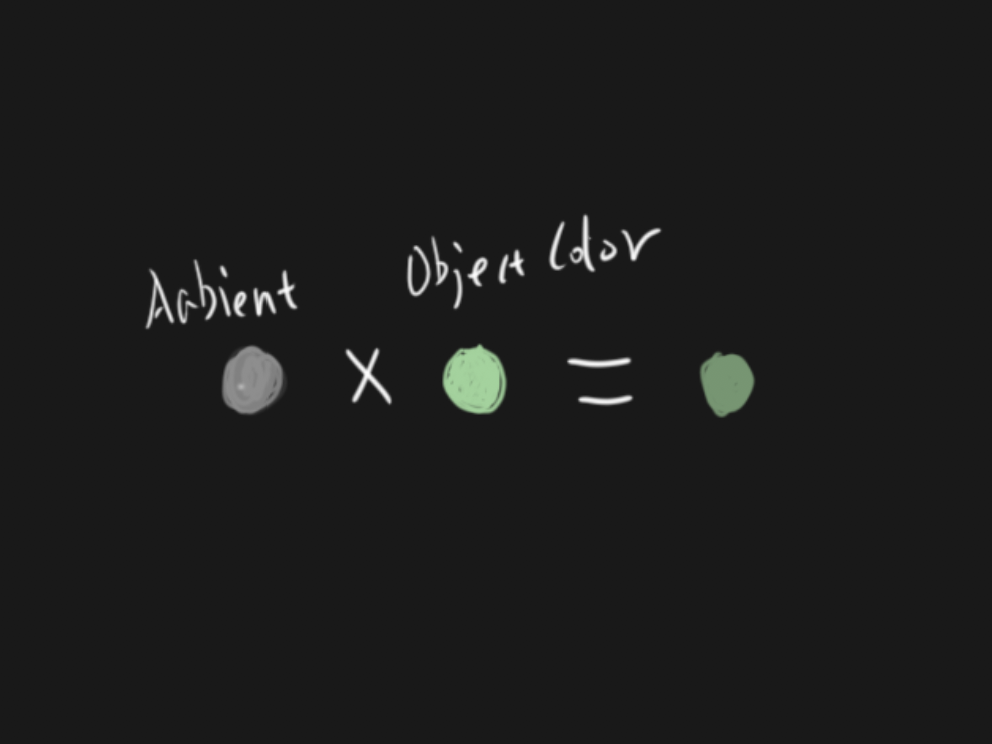 Aabient
Object Color
X =